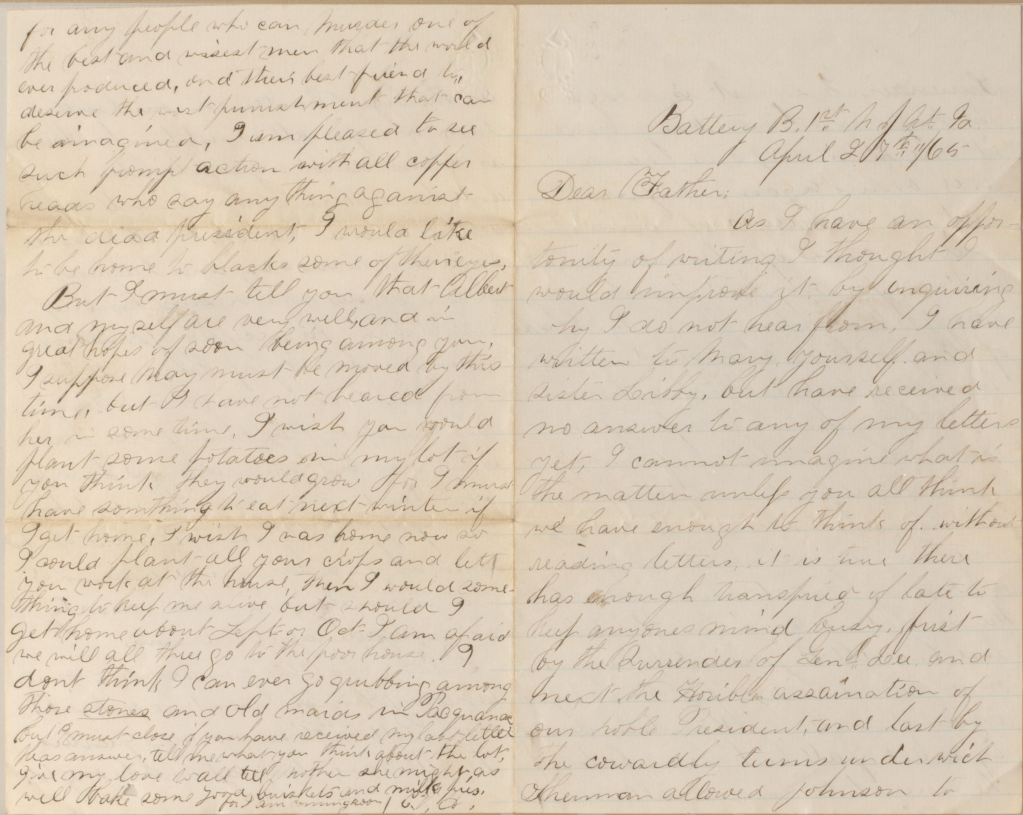 Battery B. 1st N. J. Art. Va
April 27th /65
Dear Father;
As I have an oppor-
tunity of writing I thought I
would improve it by enquiring
why I do not hear from. I have
written to Mary, yourself and
sister Libby, but have received
no answer to any of my letters
yet, I cannot imagine what is
the matter unless you all think
we have enough to think of without
reading letters, it is true there
has enough transpired of late to
keep anyones mind busy, first
by the surrender of Genl. Lee and
next the Horible assaination of
our noble President, and last by
the cowardly terms under wich
Sherman allowed Johnson to
for any people who can Murder one of
the best and wisest men that the world
ever produced, and their best friend to,
deserve the worst punishment that can
be imagined, I am pleased to see
such prompt action with all copper
heads who say any thing against
the dead president, I would like
to be home to blacks some of their eyes,
But I must tell you that Albert
and myself are very well, and in
great hopes of soon being among you,
I suppose May must be moved by this
time, but I have not heared from
her in some time, I wish you would
plant some potatoes in my lot if
you think they would grow for I must
have something to eat next winter if
I get home, I wish I was home now so
I could plant all your crops and lett
you work at the house, then I would some-
thing to keep me alive but should I
get home about Sept or Oct I am afraid
we will all three go to the poor house. I
dont think I can ever go grubbing among
those stones and old maids in Pacquanac
but I must close if you have received my last letter
answer, tell me what you think about the lot,
give my love to all tell mother she might as
well bake some good briskets and milk pies.
for I am coming soon